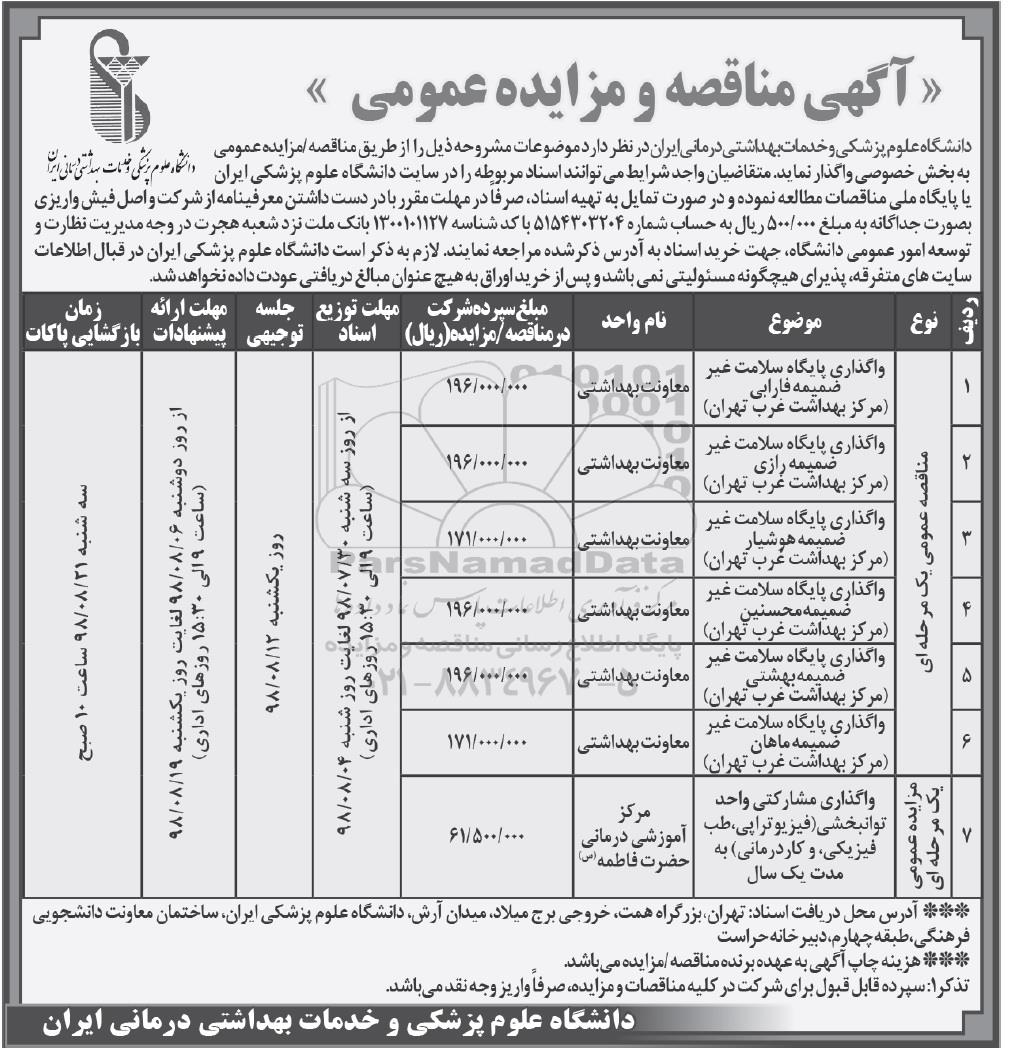 « آگهی مناقصه و مزایده عمومی »
دانشگاه علوم پزشکی و خدمات بهداشتی درمانی ایران
دانشگاه علوم پزشکی و خدمات بهداشتی درمانی ایران در نظر دارد موضوعات مشروحه ذیل را از طریق مناقصه/مزایده عمومی
به بخش خصوصی واگذار نماید. متقاضیان واجد شرایط می توانند اسناد مربوطه را در سایت دانشگاه علوم پزشکی ایران
یا پایگاه ملی مناقصات مطالعه نموده و در صورت تمایل به تهیه اسناد، صرفاً در مهلت مقرر با در دست داشتن معرفینامه از شرکت و اصل فیش واریزی
بصورت جداگانه به مبلغ ۵۰۰/۰۰۰ ریال به حساب شماره ۵۱۵۴۳۰۳۲۰۴ با کد شناسه ۱۳۰۰۱۰۱۱۲۷ بانک ملت نزد شعبه هجرت در وجه مدیریت نظارت و
توسعه امور عمومی دانشگاه، جهت خرید اسناد به آدرس ذکر شده مراجعه نمایند. لازم به ذکر است دانشگاه علوم پزشکی ایران در قبال اطلاعات
سایت های متفرقه، پذیرای هیچگونه مسئولیتی نمی باشد و پس از خرید اوراق به هیچ عنوان مبالغ دریافتی عودت داده نخواهد شد.
ردیف نوع موضوع نام واحد مبلغ سپرده شرکت در مناقصه/مزایده(ریال) مهلت توزیع اسناد جلسه توجیهی مهلت ارائه پیشنهادات زمان بازگشایی پاکات
مناقصه عمومی یک مرحله ای
۱ واگذاری پایگاه سلامت غیر ضمیمه فارابی (مرکز بهداشت غرب تهران) معاونت بهداشتی ۱۹۶/۰۰۰/۰۰۰
۲ واگذاری پایگاه سلامت غیر ضمیمه رازی (مرکز بهداشت غرب تهران) معاونت بهداشتی ۱۹۶/۰۰۰/۰۰۰
۳ واگذاری پایگاه سلامت غیر ضمیمه هوشیار (مرکز بهداشت غرب تهران) معاونت بهداشتی ۱۷۱/۰۰۰/۰۰۰
۴ واگذاری پایگاه سلامت غیر ضمیمه محسنین (مرکز بهداشت غرب تهران) معاونت بهداشتی ۱۹۶/۰۰۰/۰۰۰
۵ واگذاری پایگاه سلامت غیر ضمیمه بهشتی (مرکز بهداشت غرب تهران) معاونت بهداشتی ۱۹۶/۰۰۰/۰۰۰
۶ واگذاری پایگاه سلامت غیر ضمیمه ماهان (مرکز بهداشت غرب تهران) معاونت بهداشتی ۱۷۱/۰۰۰/۰۰۰
مزایده عمومی یک مرحله ای
۷ واگذاری مشارکتی واحد توانبخشی(فیزیوتراپی،طب فیزیکی، و کاردرمانی) به مدت یک سال مرکز آموزشی درمانی حضرت فاطمه(س) ۶۱/۵۰۰/۰۰۰
از روز سه شنبه ۹۸/۰۷/۳۰ لغایت روز شنبه ۹۸/۰۸/۰۴
(ساعت ۹ الی ۱۵:۳۰ روزهای اداری)
روز یکشنبه ۹۸/۰۸/۱۲
از روز دوشنبه ۹۸/۰۸/۰۶ لغایت روز یکشنبه ۹۸/۰۸/۱۹
(ساعت ۹ الی ۱۵:۳۰ روزهای اداری)
سه شنبه ۹۸/۰۸/۲۱ ساعت ۱۰ صبح
ParsNamadData
پایگاه اطلاع رسانی مناقصه و مزایده
۰۲۱-۸۸۳۴۹۶۷۰-۵
*** آدرس محل دریافت اسناد: تهران، بزرگراه همت، خروجی برج میلاد، میدان آرش، دانشگاه علوم پزشکی ایران، ساختمان معاونت دانشجویی
فرهنگی، طبقه چهارم، دبیرخانه حراست
*** هزینه چاپ آگهی به عهده برنده مناقصه/مزایده می باشد.
تذکر۱: سپرده قابل قبول برای شرکت در کلیه مناقصات و مزایده، صرفاً واریز وجه نقد می باشد.
دانشگاه علوم پزشکی و خدمات بهداشتی درمانی ایران